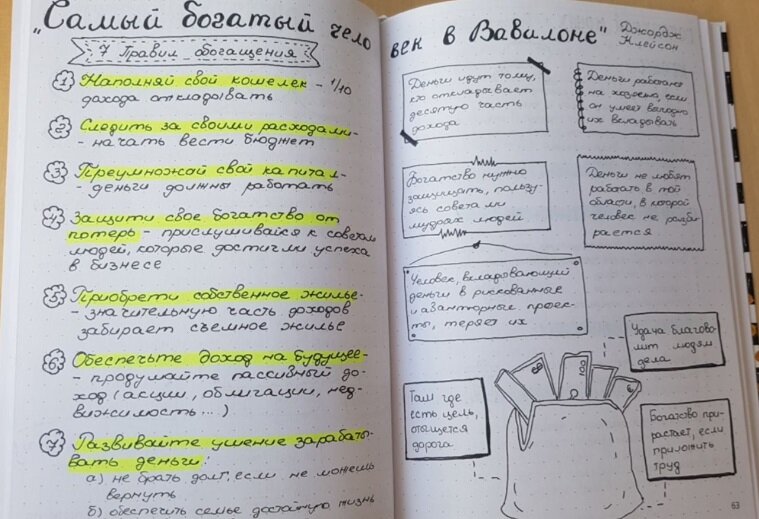 „Самый богатый человек в Вавилоне"
Джордж
Клейсон
7 Правил обогащения
1 Наполняй свой кошелек - 1/10
дохода откладывать
2 Следить за своими расходами -
- начать вести бюджет
3 Преумножай свой капитал -
- деньги должны работать
4 Защити свое богатство от
потерь - прислушивайся к советам
людей, которые достигли успеха
в бизнесе
5 Приобрети собственное жилье -
- значительную часть доходов
забирает съемное жилье
6 Обеспечьте доход на будущее -
- продумайте пассивный до-
ход (акции, облигации, нед-
вижимость...)
7 Развивайте умение зарабаты-
вать деньги:
а) не брать долг, если не можешь
вернуть
б) обеспечить семье достойную жизнь
Деньги идут тому,
кто откладывает
десятую часть
дохода
Деньги работают
на хозяина, если
он умеет выгодно
их вкладывать
Богатство нужно
защищать, пользу-
ясь советами
мудрых людей
Деньги не любят
работать в той
области, в которой
человек не разби-
рается
Человек, вкладывающий
деньги в рискованные
и авантюрные проек-
ты, теряет их
Удача благово-
лит людям
дела
Там где
есть цель,
отыщется
дорога
Богатство при-
растает, если
приложить
труд
63